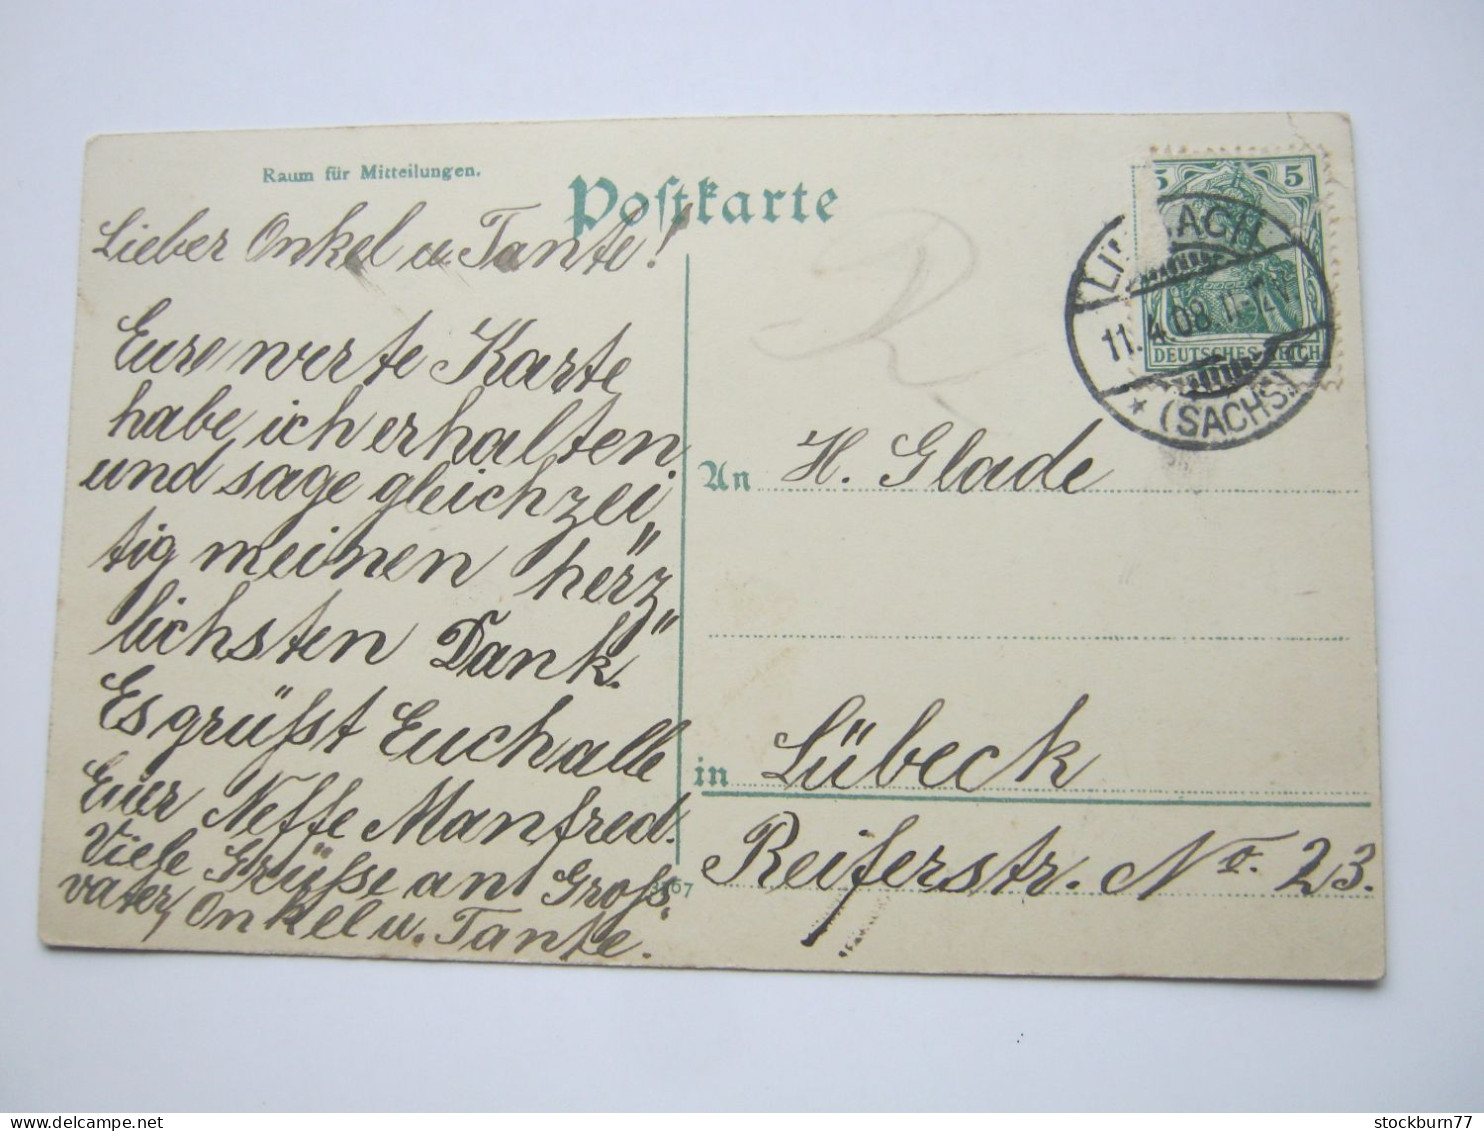 Raum für Mitteilungen.
Postkarte
Lieber Onkel u. Tante!
Eure werte Karte
habe ich erhalten
und sage gleichzei„
tig meinen herz„
lichsten Dank.
Es grüßt Euch alle
Euer Neffe Manfred.
Viele Grüße an Groß-
vater, Onkel u. Tante.
5 5
DEUTSCHES REICH
11.4.08.11-12V.
* (SACHS)
An H. Glade
in Lübeck
Reiferstr. No. 23.
stockburn77